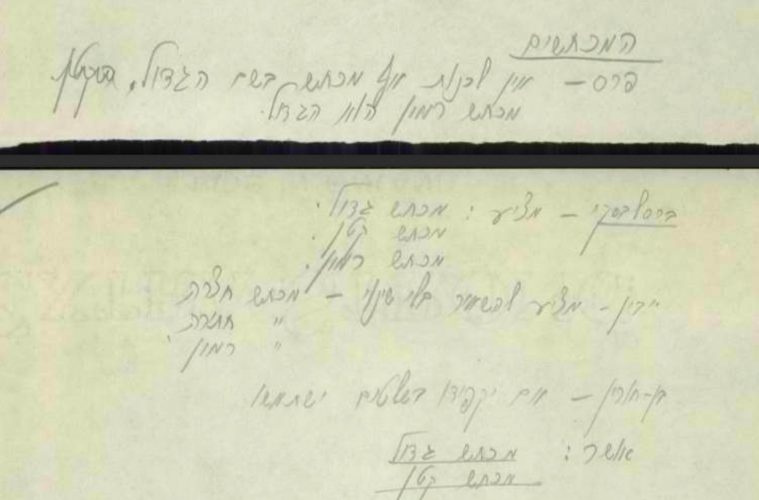 המכתשים
פרס — אין לכנות אף מכתש בשם הגדול, הקטן
מכתש רמון הוא הגדול.
ברסלבסקי — מציע: מכתש גדול.
מכתש קטן.
מכתש רמון.
ידין — מציע להשאיר בלי שינוי — מכתש חצרה
" חתירה
" רמון.
בן-חורין — אם יקפידו בשלטים ישתמשו
אושר: מכתש גדול
מכתש קטן